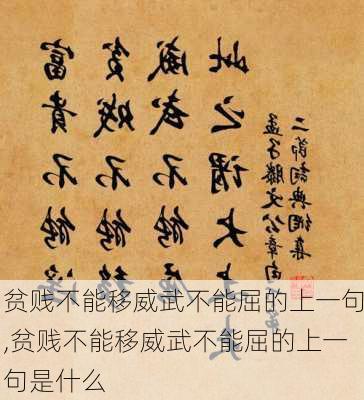 富貴不能淫
貧賤不能移
威武不能
此之謂大
孟子滕文公章句
贫贱不能移威武不能屈的上一句
,贫贱不能移威武不能屈的上一
句是什么